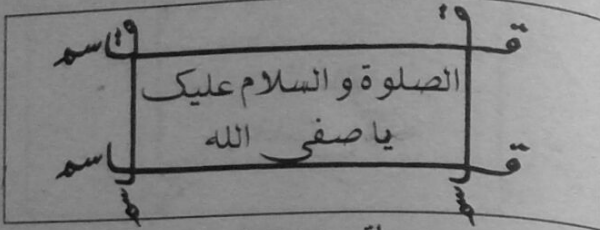 قاسم
الصلوة و السلام عليک
يا صفى الله
قاسم
قاسم
قاسم